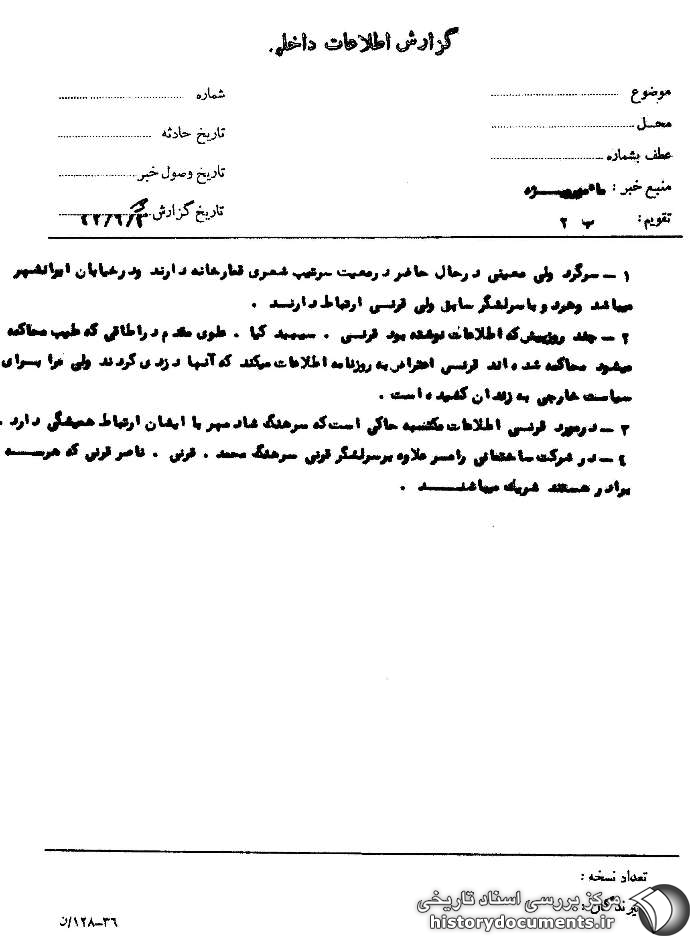 گزارش اطلاعات داخلی
موضوع
شماره
محل
تاریخ حادثه
عطف بشماره
تاریخ وصول خبر
منبع خبر :
تاریخ گزارش
تقویم : ب ۲
۱ - سرگرد ولی معینی درحال حاضر درمعیت سرتیپ شعری قمارخانه دارند ودرخیابان ایرانشهر
میباشد و با سرلشگر سابق ولی قرنسی ارتباط دارنـد .
۲ - چند روزپیش که اطلاعات نوشته بود قرنسی . سپهبد کیا . علوی مقدم دراطاقی که طیب محاکمه
میشود محاکمه شده اند قرنسی اعتراض به روزنامه اطلاعات میکند که آنها دزدی کردند ولی مرا بـرای
سیاست خارجی به زندان کشیده است .
۳ - درمورد قرنسی اطلاعات مکتسبه حاکی است که سرهنگ شادمهر با ایشان ارتباط همیشگی دارد .
۴ - در شرکت ساختمانی رامسر علاوه برسرلشگر قرنی سرهنگ محمد . قرنی . ناصر قرنی که هرسـه
برادر هستند شریک میباشنـد .
تعداد نسخه :
گیرندگان :
۳۶-۱۲۸/ن
مرکز بررسی اسناد تاریخی
historydocuments.ir